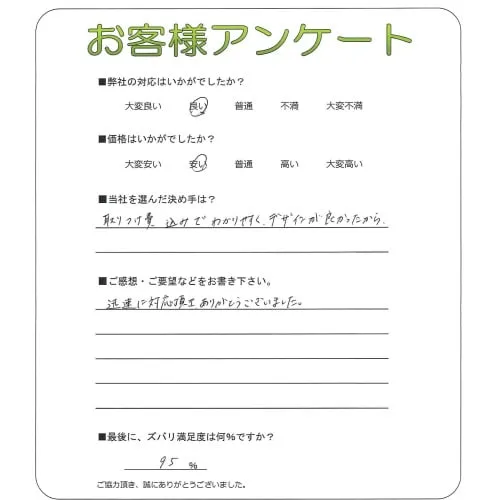 お客様アンケート
■弊社の対応はいかがでしたか?
大変良い 良い 普通 不満 大変不満
■価格はいかがでしたか?
大変安い 安い 普通 高い 大変高い
■当社を選んだ決め手は?
取りつけ費 込みで わかりやすく、デザインが良かったから。
■ご感想・ご要望などをお書き下さい。
迅速に対応頂きありがとうございました。
■最後に、ズバリ満足度は何%ですか?
95 %
ご協力頂き、誠にありがとうございました。